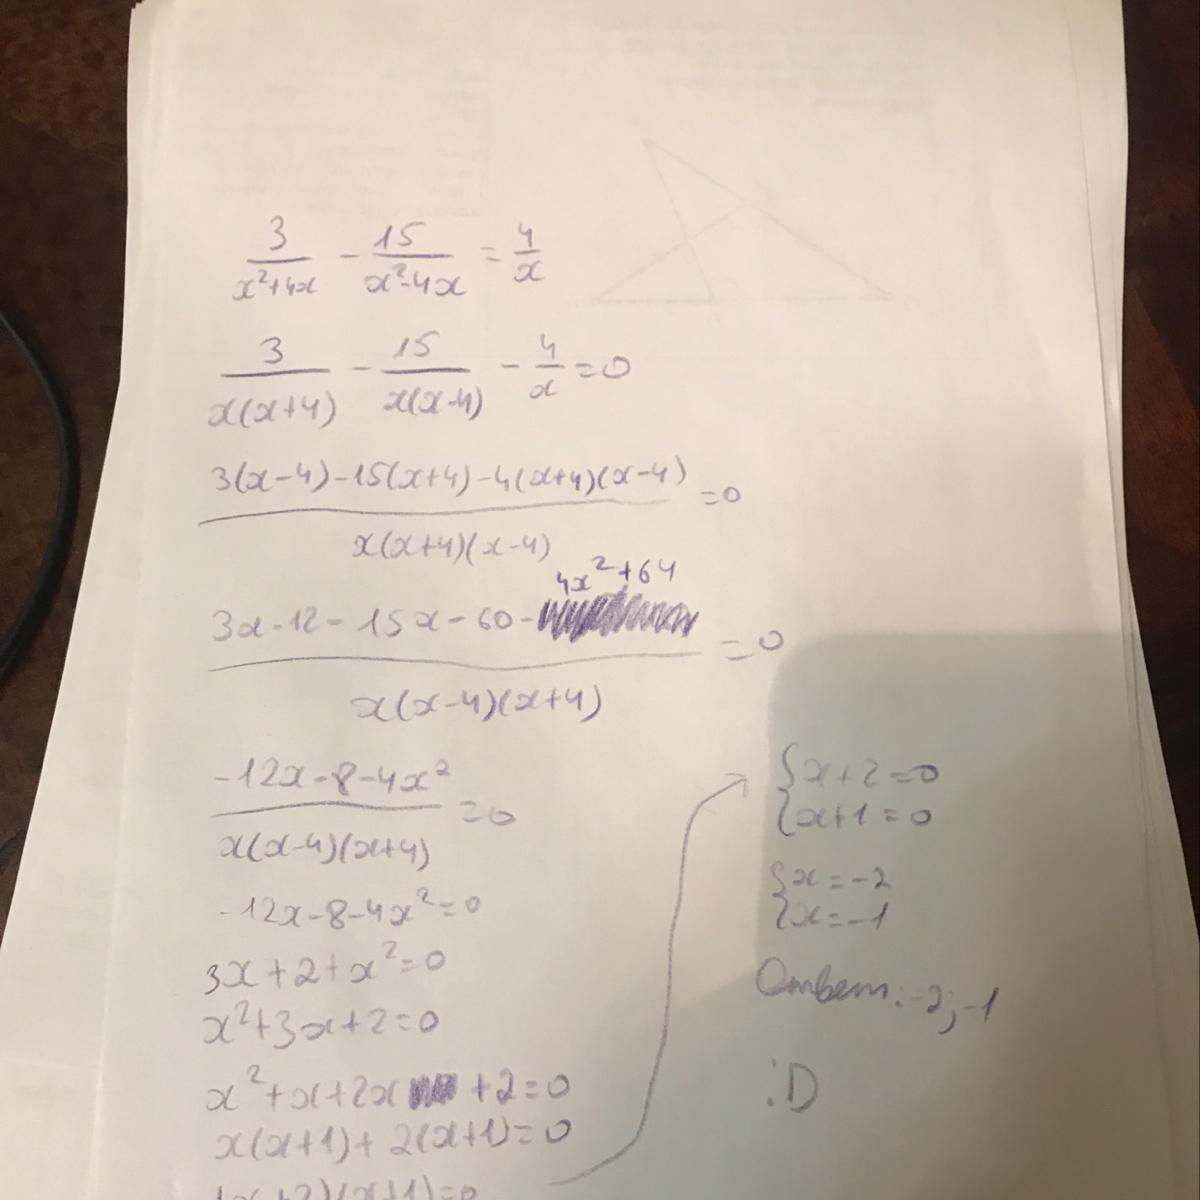 3/(x²+4x) - 15/(x²-4x) = 4/x
3/(x(x+4)) - 15/(x(x-4)) - 4/x = 0
(3(x-4)-15(x+4)-4(x+4)(x-4))/(x(x+4)(x-4)) = 0
(3x-12-15x-60-4x²+64)/(x(x-4)(x+4)) = 0
(-12x-8-4x²)/(x(x-4)(x+4)) = 0
-12x-8-4x²=0
3x+2+x²=0
x²+3x+2=0
x²+x+2x+2=0
x(x+1)+2(x+1)=0
(x+2)(x+1)=0
{x+2=0
{x+1=0
{x=-2
{x=-1
Ответ: -2; -1
:D